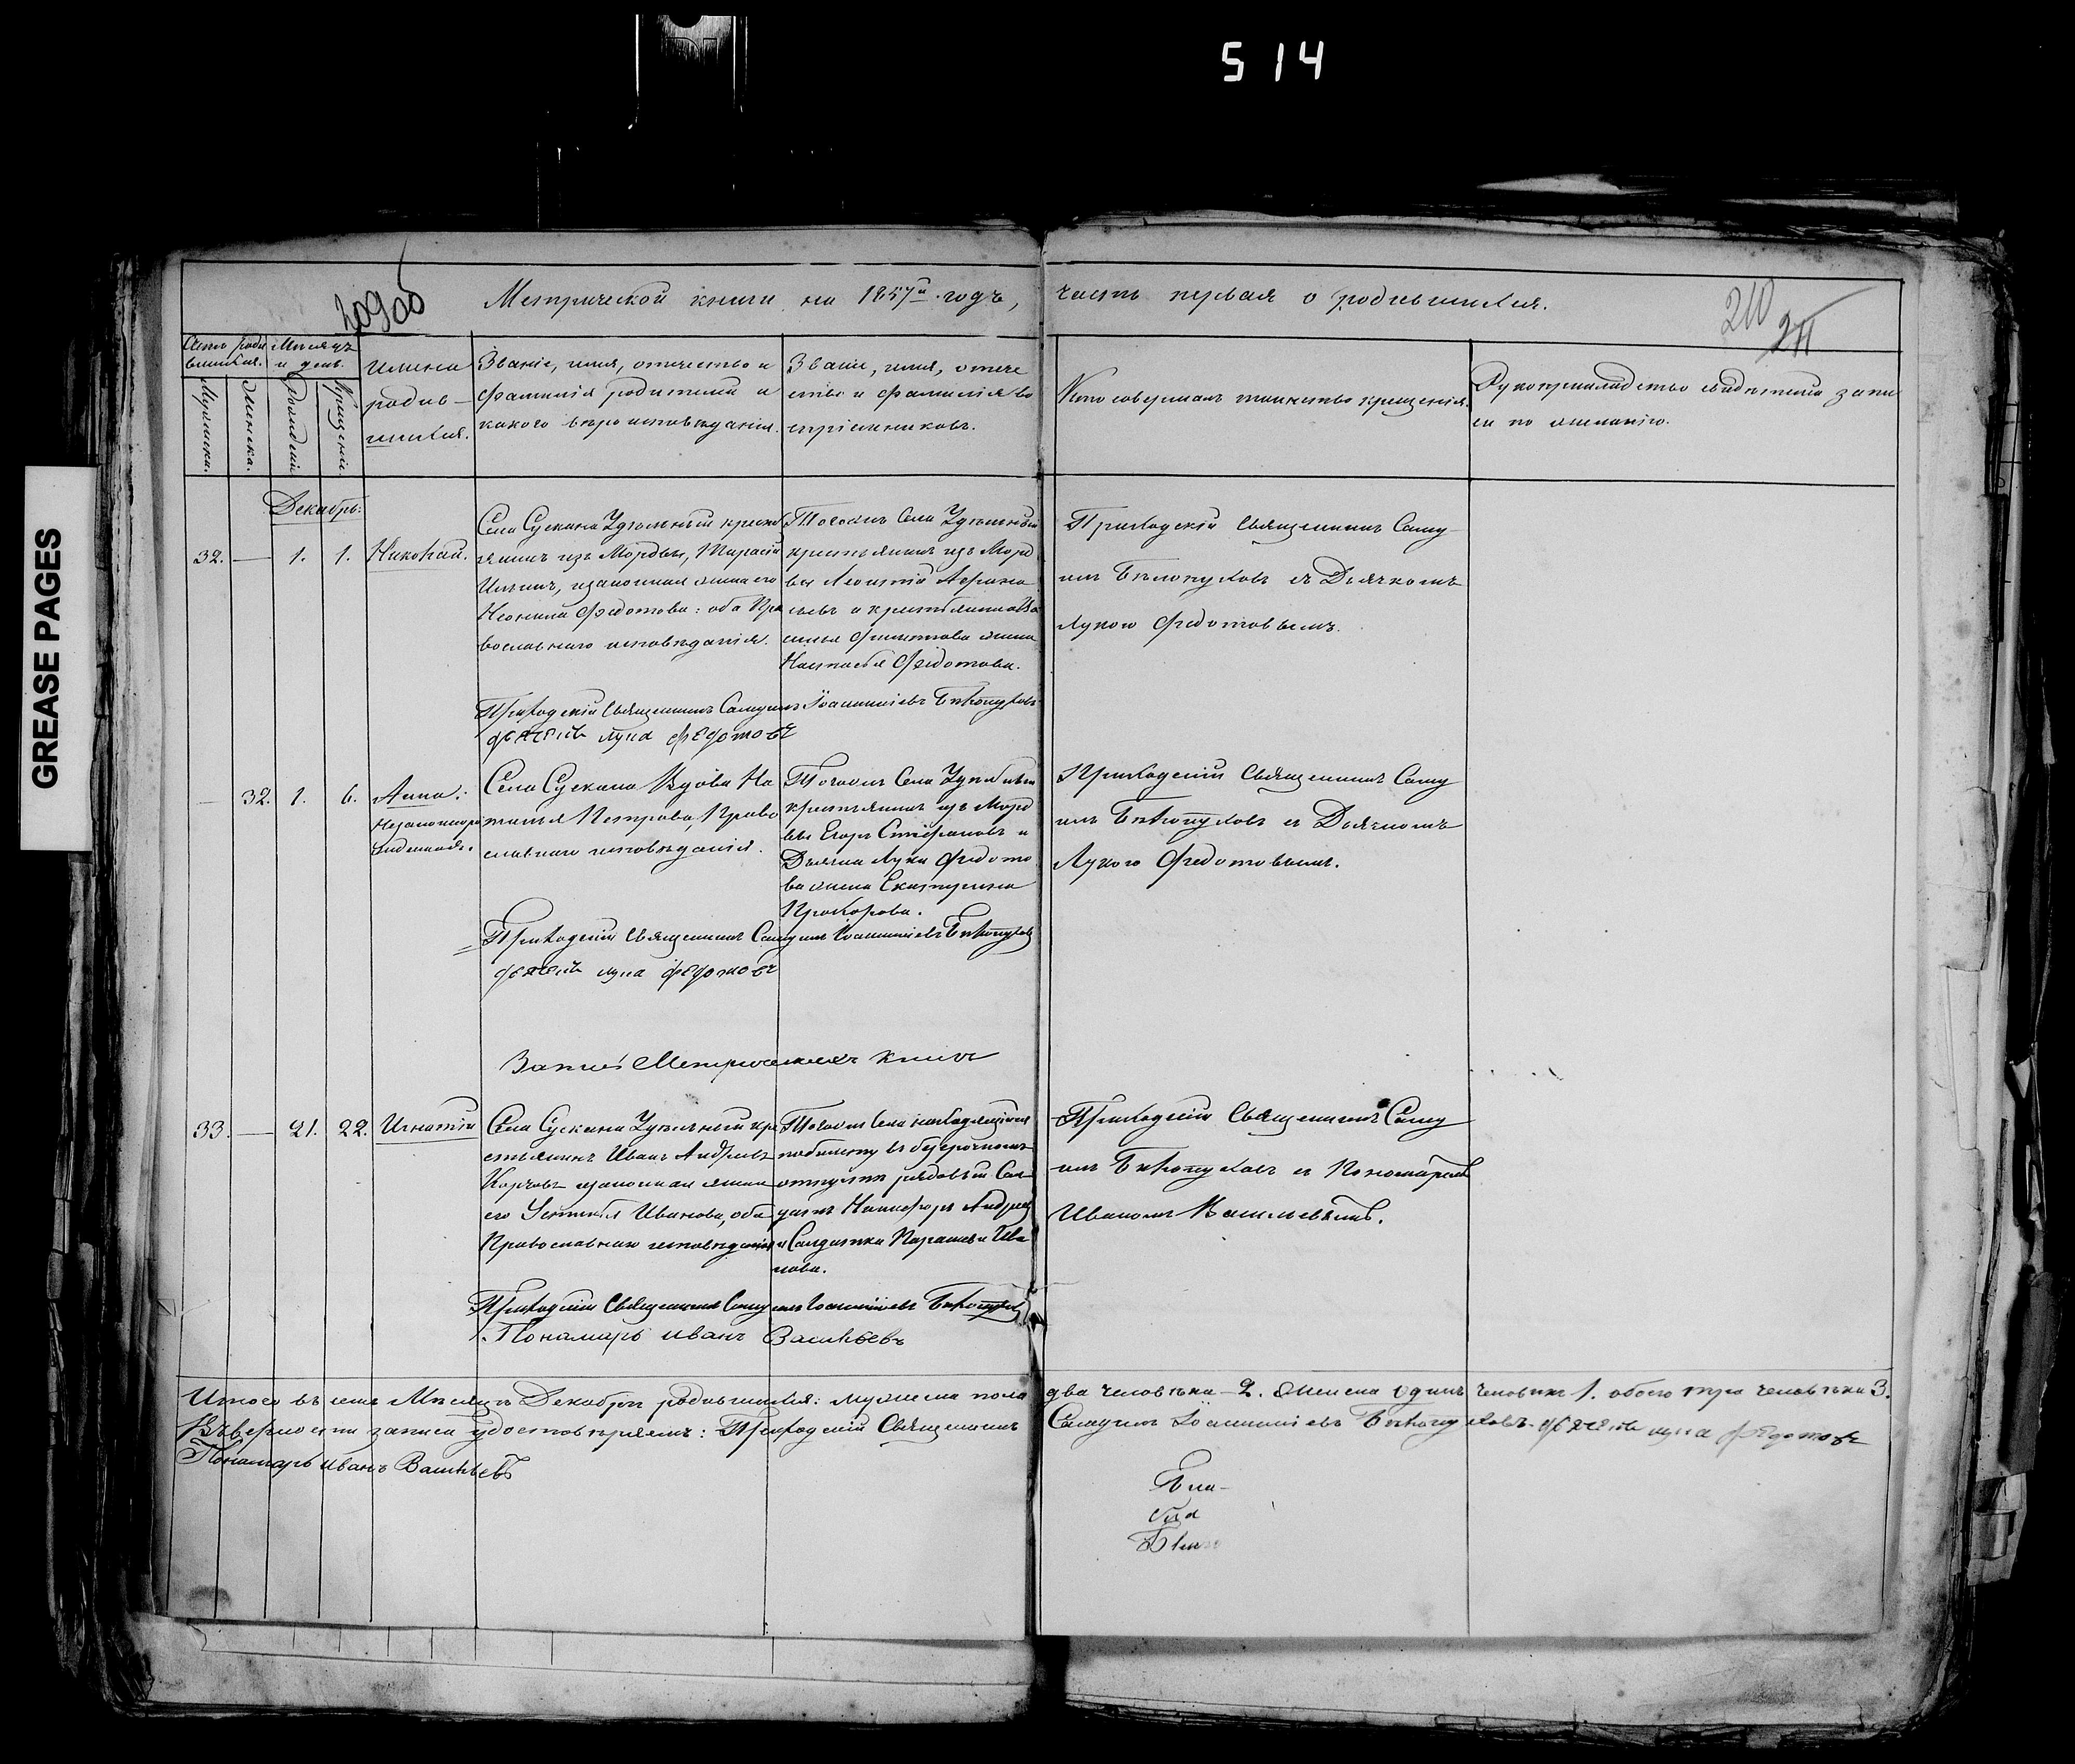 514
GREASE PAGES
209об
210
211
Метрической книги на 1857й годъ, часть первая о родившихся.
Счетъ родившихся.
Мѣсяцъ и день.
Мужеска.
Женска.
Рожденія
Крещенія
Имена
родив-
шихся.
Званіе, имя, отечество и
фамилія родителей и
какого вѣроисповѣданія.
Званіе, имя, отече
ство и фамилія во
спріемниковъ.
Кто совершалъ таинство крещенія.
Рукоприкладство свидѣтелей запи
си по желанію.
Декабрь:
32. — 1. 1. Николай.
Села Сускана Удѣльный кресть
янинъ изъ Мордвы,
Ильинъ, и законная жена его
Неонила Федотова: оба Пра
вославнаго исповѣданія.
Тогожъ Села Удѣльный
крестьянинъ изъ Морд
вы Леонтій
и крестьянина
жена
Настасья Федотова.
Приходскій Священникъ Саму
илъ Бѣлопуховъ съ Дьячкомъ
Лукою Федотовымъ.
Приходскій Священникъ Самуилъ Іоанникіевъ Бѣлопуховъ
дьячекъ лука федотовъ
— 32. 1. 6. Анна:
Незаконноро
жденная.
Села Сускана Вдова На
талья Петрова, Право
славнаго исповѣданія.
Тогожъ Села Удѣльный
крестьянинъ изъ Морд
вы Егоръ Стефановъ и
Дьячка Луки Федото
ва жена Екатерина
Прохорова.
Приходскій Священникъ Саму
илъ Бѣлопуховъ съ Дьячкомъ
Лукою Федотовымъ.
Приходскій Священникъ Самуилъ Іоанникіевъ Бѣлопуховъ
дьячекъ лука федотовъ
Метрическихъ книгъ
33. — 21. 22. Игнатій
Села Сускана Удѣльный кре
стьянинъ Иванъ Андреевъ
и законная жена
его Устинья Иванова, оба
Православнаго исповѣданія
Тогожъ Села находящійся
по билету въ безсрочномъ
отпуску рядовый Сол
датъ Никифоръ Андреевъ
и Солдатка Парасева Ива
нова.
Приходскій Священникъ Саму
илъ Бѣлопуховъ съ Пономаремъ
Иваномъ Васильевымъ.
Приходскій Священникъ Самуилъ Іоанникіевъ Бѣлопуховъ
Пономарь иванъ Васильевъ
Итого въ семъ Мѣсяцѣ Декабрѣ родившихся: мужеска пола два человѣка — 2. Женска одинъ человѣкъ 1. обоего три человѣка 3.
Въ верности записи удостовѣряемъ: Приходскій Священникъ Самуилъ Іоанникіевъ Бѣлопуховъ. дьячекъ лука федотовъ
Пономарь иванъ Васильевъ